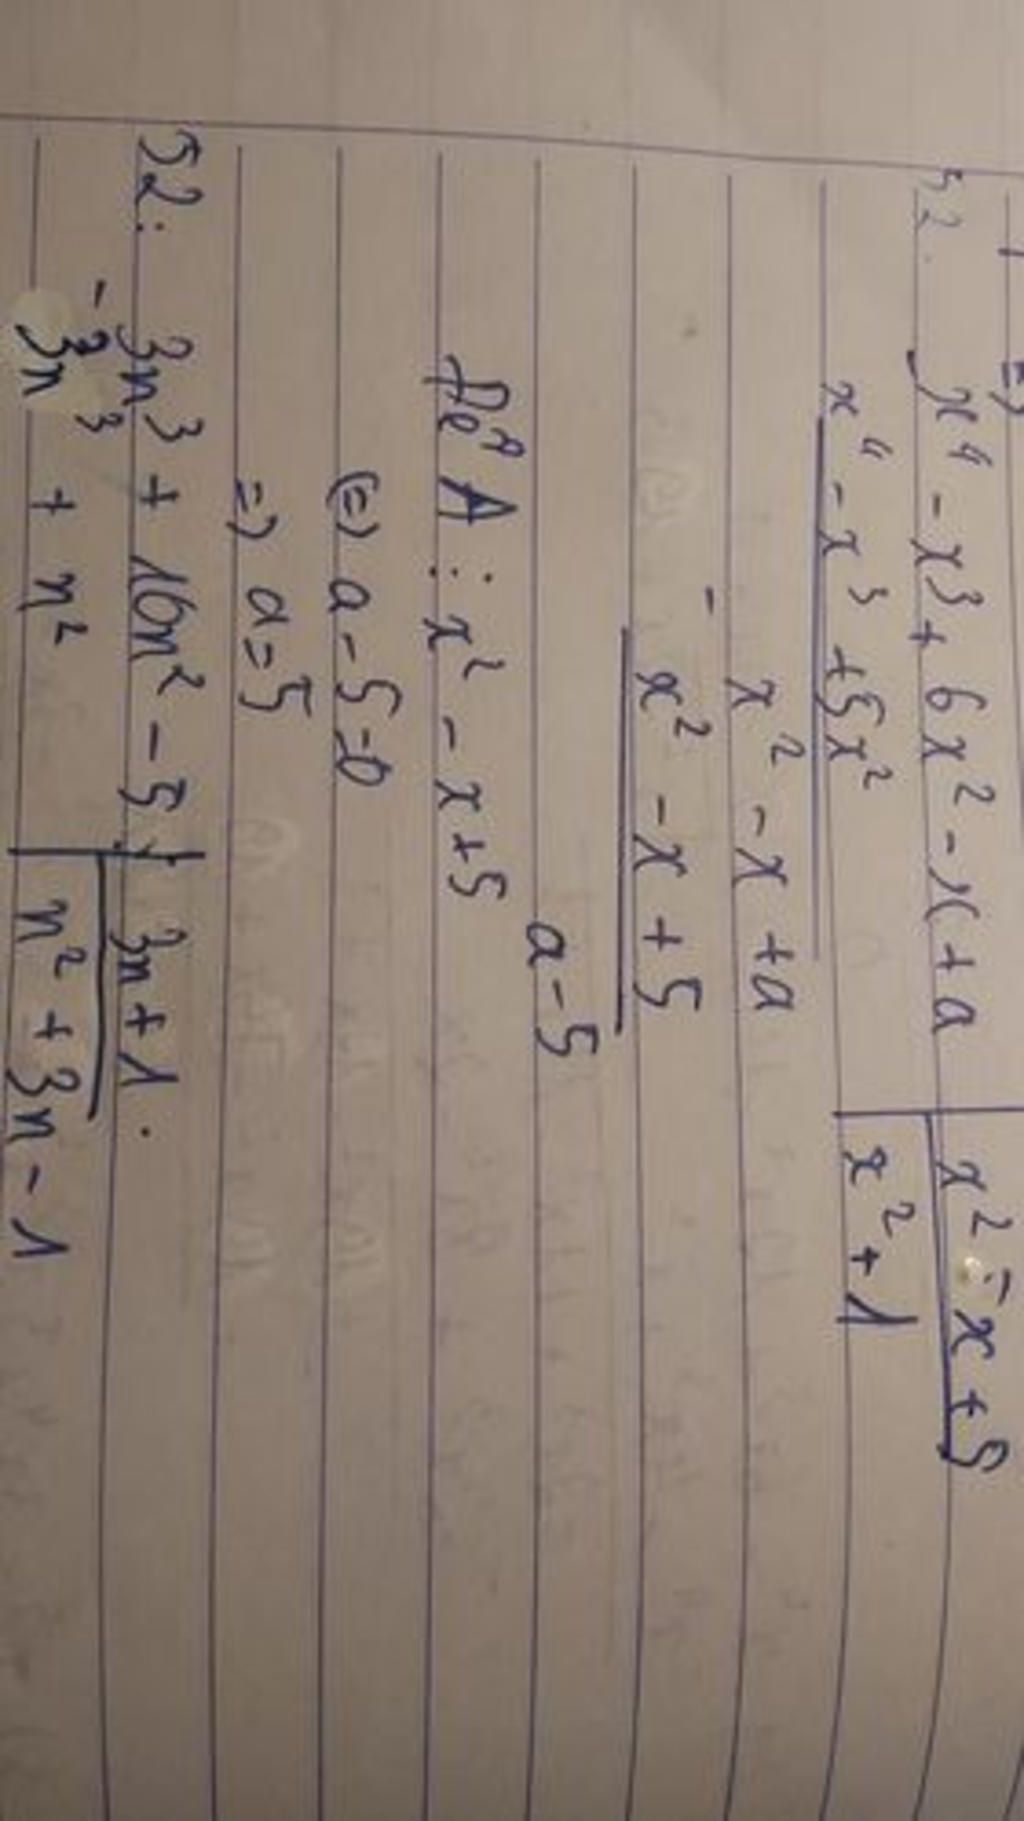 52. x⁴ - x³ + 6x² - x + a | x² - x + 5
x⁴ - x³ + 5x² | x² + 1
x² - x + a
- x² - x + 5
a - 5
Để A ⋮ x² - x + 5
(=) a - 5 = 0
=) a = 5
52: 3n³ + 10n² - 5 | 3n + 1.
- 3n³ + n² | n² + 3n - 1